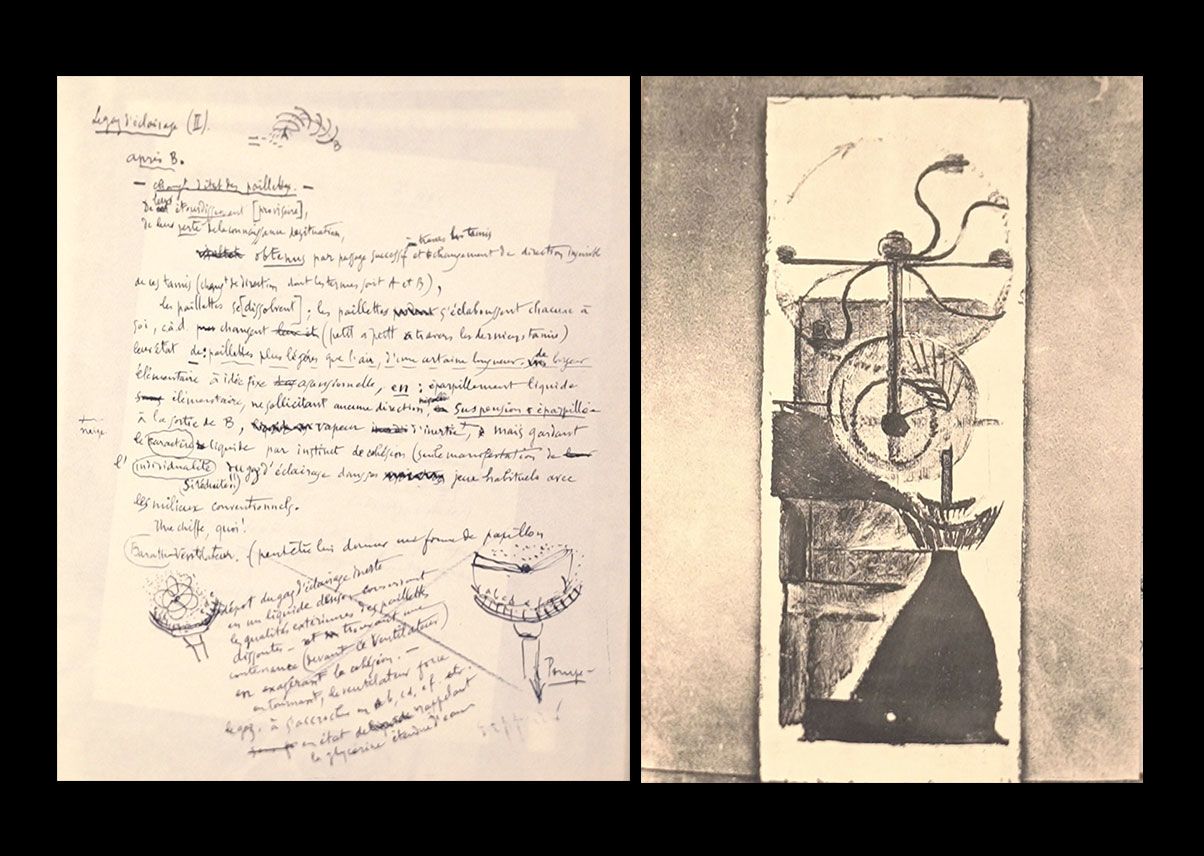 Le gaz d'éclairage (II).
A
B
après B.
— changt d'état des paillettes. —
De leur étourdissement [provisoire],
de leur perte de la connaissance de situation,
à travers les tamis
obtenus par passage successif et changement de direction
de ces tamis (changt de direction dont les termes sont A et B),
les paillettes se [dissolvent] ; les paillettes s'éclaboussent chacune à
soi, c.à.d. changent (petit à petit à travers les derniers tamis)
leur état de : paillettes plus légères que l'air, d'une certaine longueur, de
élémentaire à idée fixe ascensionnelle, en : éparpillement liquide
élémentaire, ne sollicitant aucune direction, suspension éparpillée
à la sortie de B, vapeur d'inertie, mais gardant
neige
le caractère liquide par instinct de cohésion (seule manifestation de
l' individualité du gaz d'éclairage dans ses jeux habituels avec
(si réduite!!)
les milieux conventionnels.
Une chiffe, quoi!
Baratte Ventilateur. (peut être lui donner une forme de papillon
dépot du gaz d'éclairage inerte
en un liquide dense conservant
les qualités extérieures des paillettes
dissoutes — et trouvant une
contenance (devant le ventilateur)
en exagérant la cohésion. —
en tournant, le ventilateur force
le gaz à s'accrocher en ab, cd, ef. etc.
en état de liquide rappelant
la glycérine étendue d'eau
a b c d e f
Pompe —